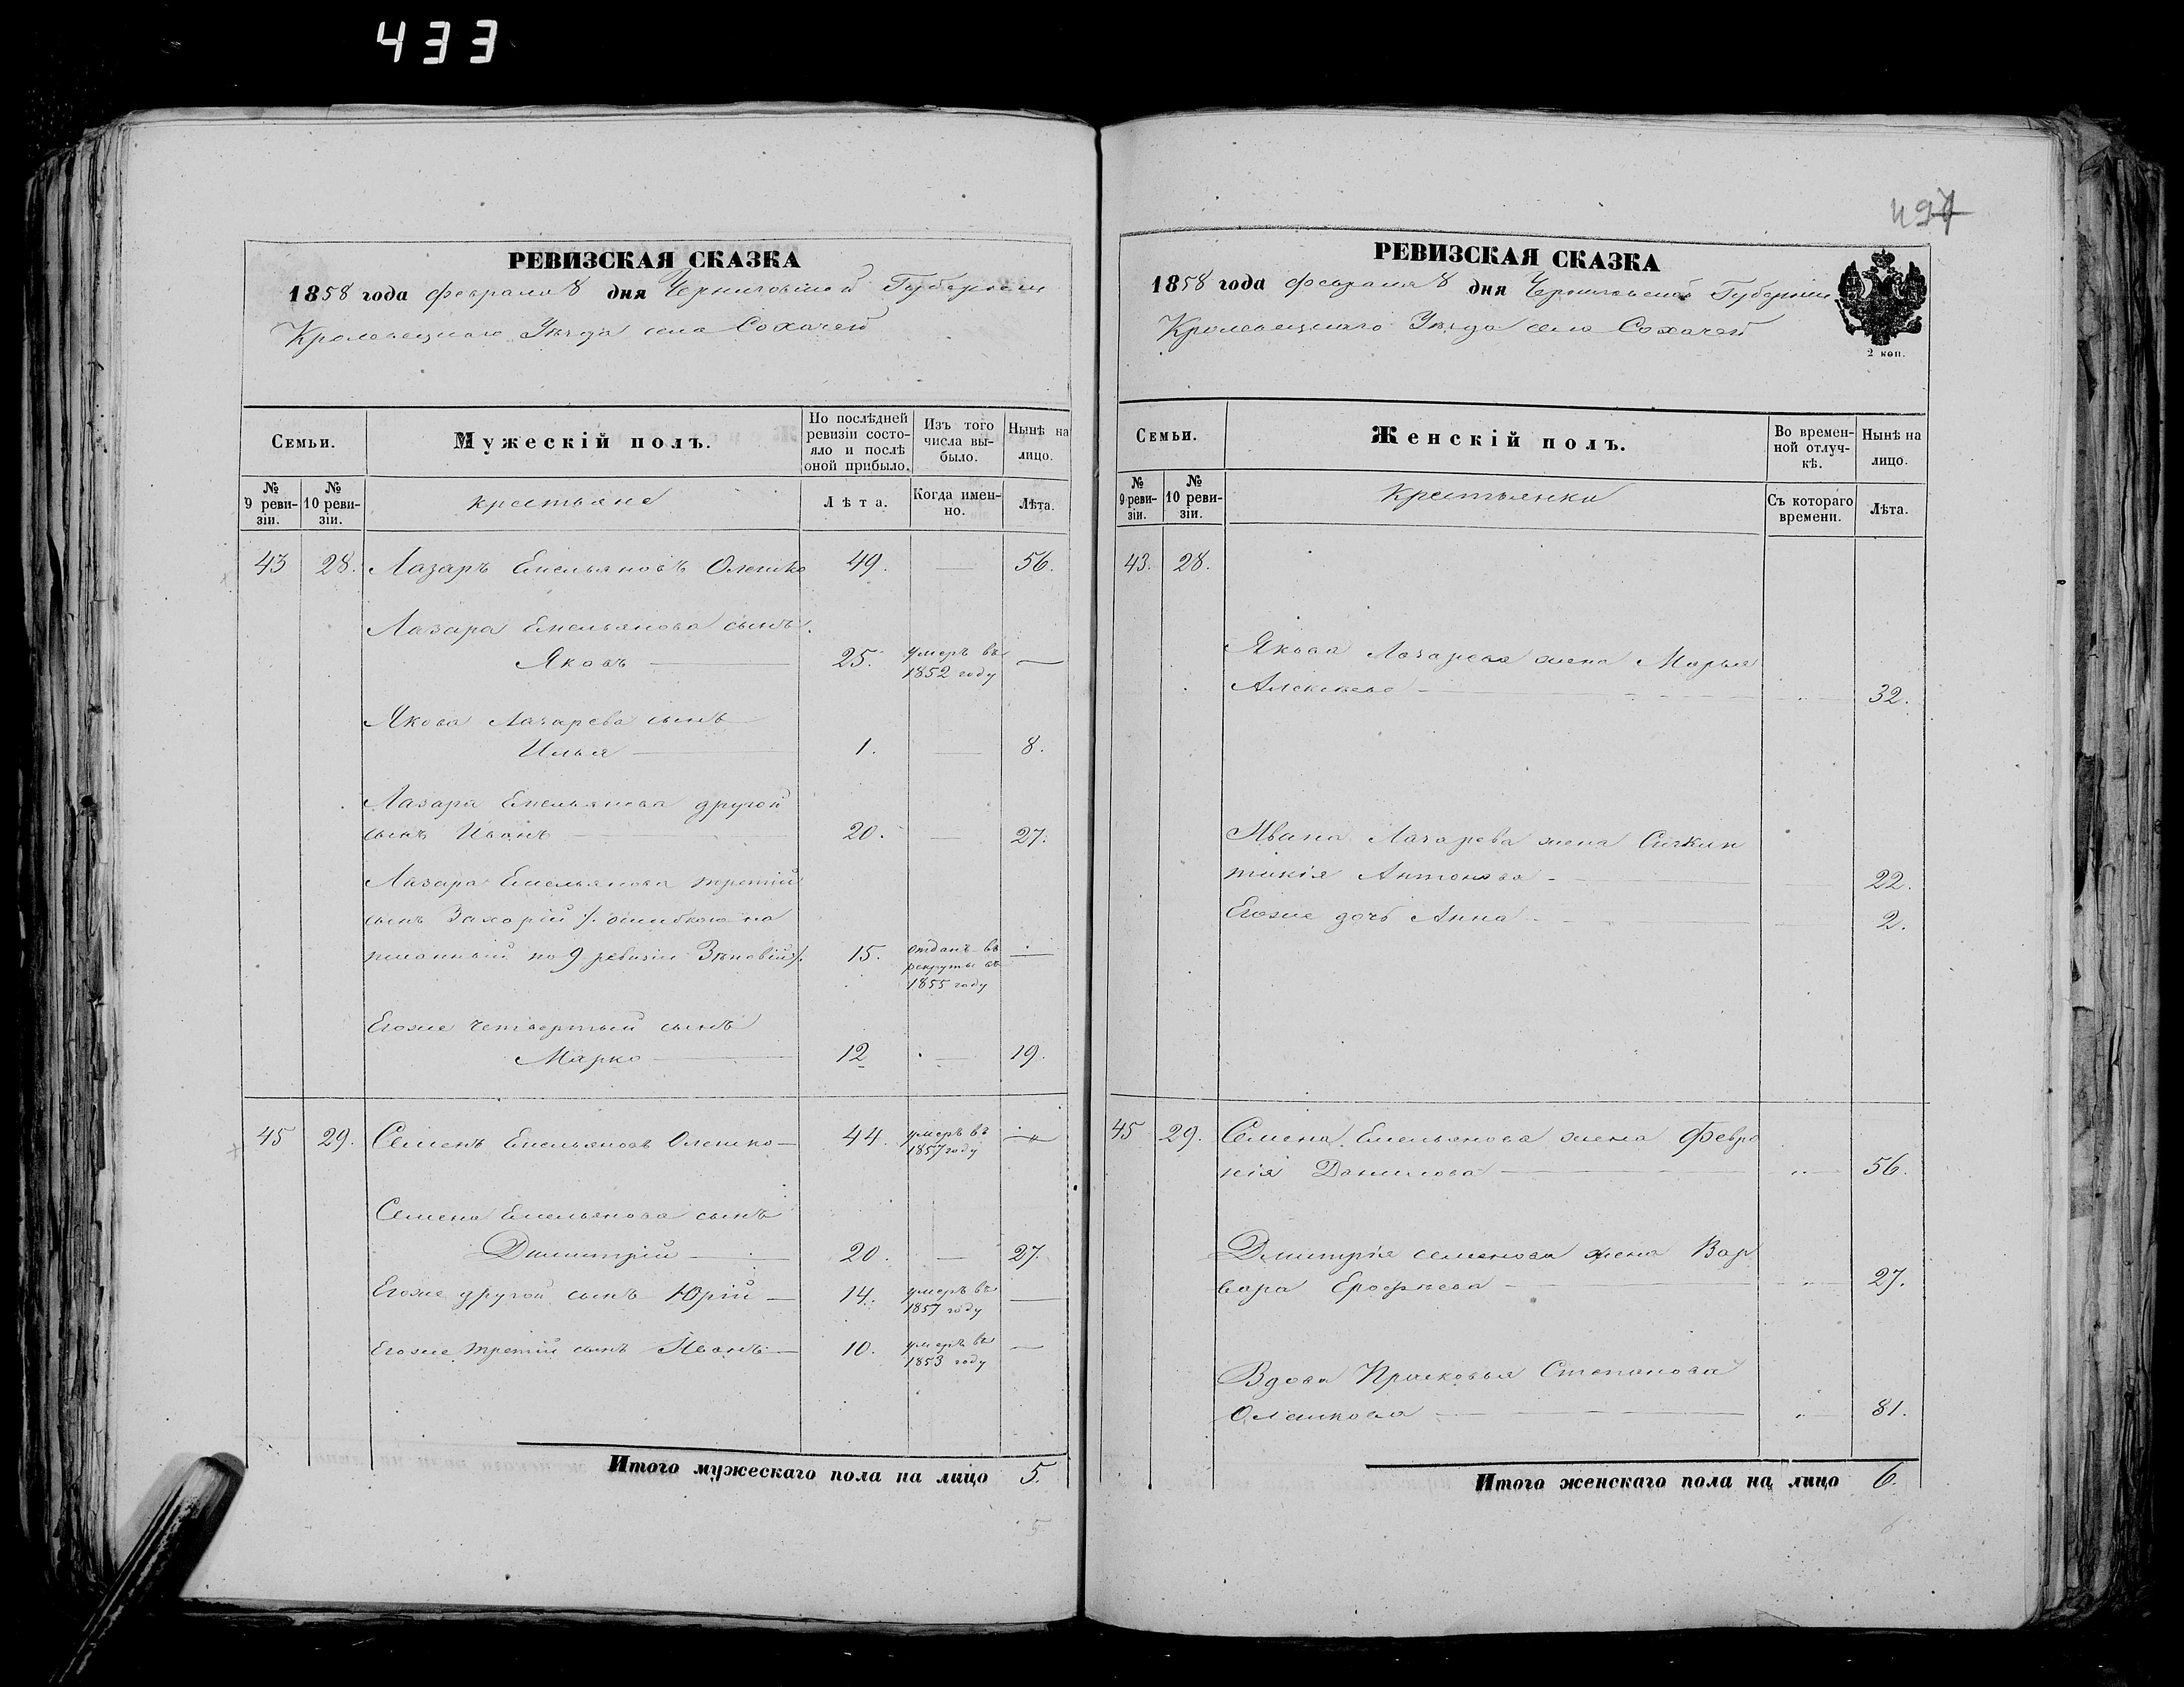 433
497
РЕВИЗСКАЯ СКАЗКА
1858 года февраля 8 дня Черниговской Губернии
Кролевецкаго Уѣзда села Сохачей
Семьи.
Мужескій полъ.
По послѣдней ревизіи состояло и послѣ оной прибыло.
Изъ того числа выбыло.
Нынѣ на лицо.
№ 9 ревизіи.
№ 10 ревизіи.
крестьяне
Лѣта.
Когда именно.
Лѣта.
43 28. Лазаръ Емельяновъ Олешко 49. — 56.
Лазара Емельянова сынъ
Яковъ — 25. умеръ въ 1852 году —
Якова Лазарева сынъ
Илья — 1. — 8.
Лазара Емельянова другой
сынъ Иванъ — 20. — 27.
Лазара Емельянова третій
сынъ Захарій /: ошибкою на
писанный по 9 ревизіи Зѣновій :/ 15. отданъ въ рекруты въ 1855 году —
Егоже четвертый сынъ
Марко — 12 — 19.
45 29. Семенъ Емельяновъ Олешко — 44. умеръ въ 1857 году —
Семена Емельянова сынъ
Димитрій — 20. — 27.
Егоже другой сынъ Юрій — 14. умеръ въ 1857 году —
Егоже третій сынъ Иванъ — 10. умеръ въ 1853 году —
Итого мужескаго пола на лицо 5.
5
РЕВИЗСКАЯ СКАЗКА
1858 года февраля 8 дня Черниговской Губерніи
Кролевецкаго Уѣзда села Сохачей
2 коп.
Семьи.
Женскій полъ.
Во временной отлучкѣ.
Нынѣ на лицо.
№ 9 ревизіи.
№ 10 ревизіи.
Крестьянки
Съ котораго времени.
Лѣта.
43. 28.
Якова Лазарева жена Марья
Алексѣева — 32.
Ивана Лазарева жена
Антонова — 22.
Егоже дочь Анна — 2.
45 29. Семена Емельянова жена Февро
нія Данилова — 56.
Дмитрія Семенова жена Вар
вара Ерофѣева — 27.
Вдова Прасковья Степанова
Олешкова — 81.
Итого женскаго пола на лицо 6.
6